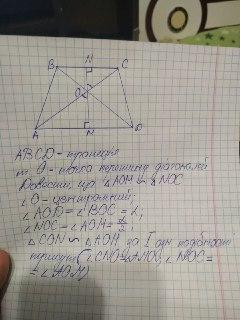 B N C
O
A M D
ABCD - трапеція
т. O - точка перетину діагоналей
Довести, що △AOM ∽ △NOC
∠O - центральний
∠AOD = ∠BOC = α;
∠NOC = ∠AOM = α/2;
△CON ∽ △AOM за I озн подібності
∠NOC =
= ∠AOM)